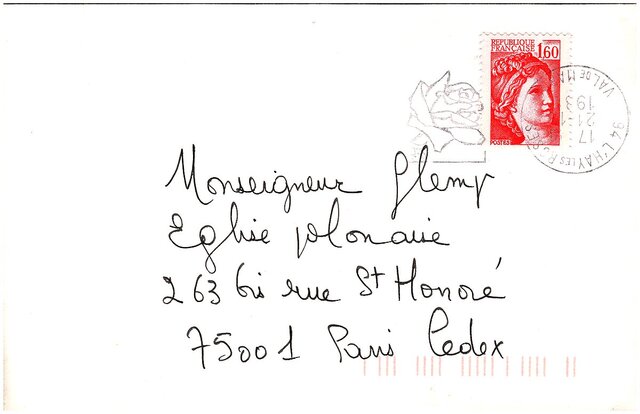 REPUBLIQUE
FRANÇAISE
1,60
POSTES
94 L'HAY LES
VAL DE MA
17
21-1
193
Monseigneur Glemp
Eglise polonaise
263 bis rue St Honoré
75001 Paris Cedex